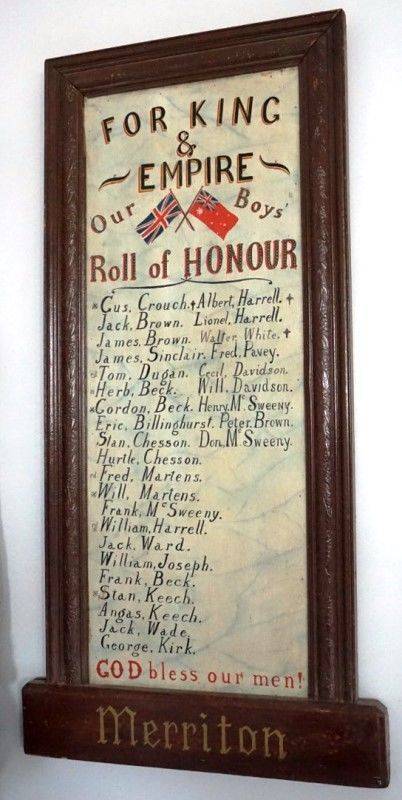 FOR KING
&
EMPIRE
Our Boys'
Roll of HONOUR
*Gus, Crouch.✝Albert, Harrell.✝
Jack, Brown. Lionel, Harrell.
James, Brown. Walter, White.✝
James, Sinclair. Fred, Pavey.
*Tom. Dugan. Cecil, Davidson.
*Herb, Beck. Will. Davidson.
*Gordon, Beck. Henry, Mc Sweeny.
Eric, Billinghurst. Peter, Brown.
Stan, Chesson. Don, Mc Sweeny.
Hurtle, Chesson.
*Fred, Martens.
*Will, Martens.
Frank, Mc Sweeny.
*William, Harrell.
Jack, Ward.
William, Joseph.
Frank, Beck.
*Stan, Keech.
Angas, Keech.
Jack, Wade.
George, Kirk.
GOD bless our men!
Merriton